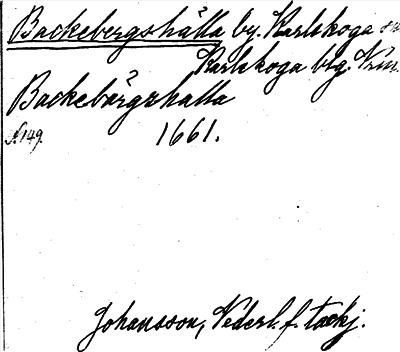 Backebergshälla by. Karlskoga sn
Karlskoga blg. Vrm.
Backebärgzhalla
s. 149. 1661.
Johansson, Vederl. f. tackj.